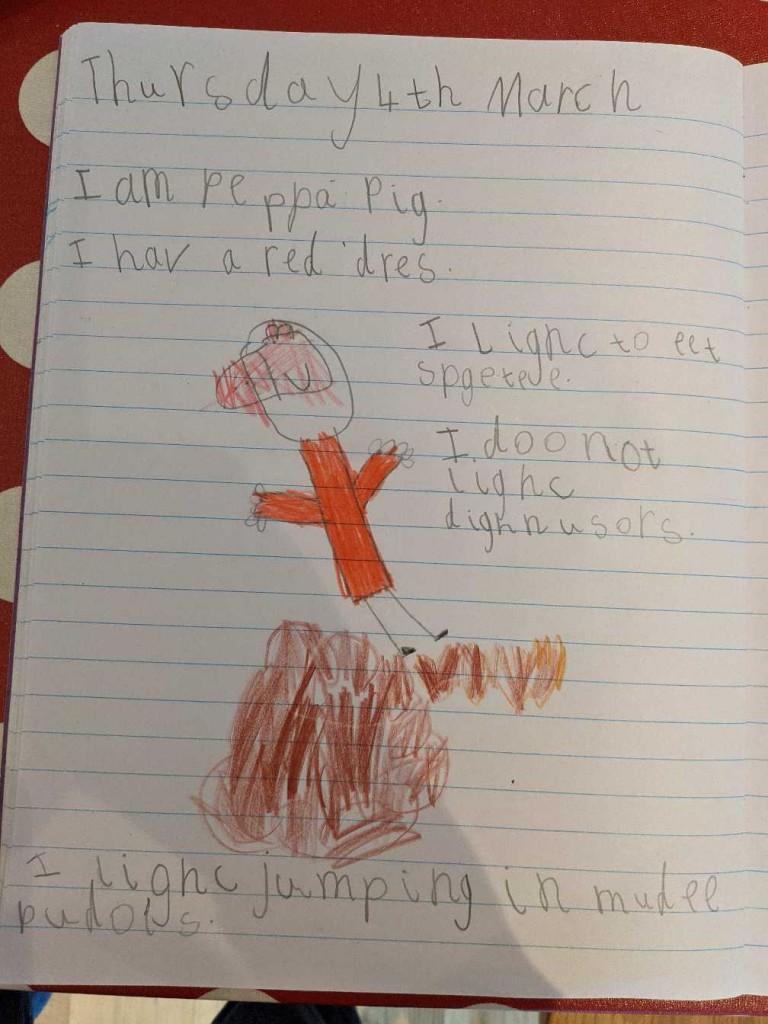 Thursday 4th March
I am Peppa Pig.
I hav a red dres.
I lighc to eet
spgeteve.
I doo not
lighc
dighnusors.
I lighc jumping in mudee
pudols.